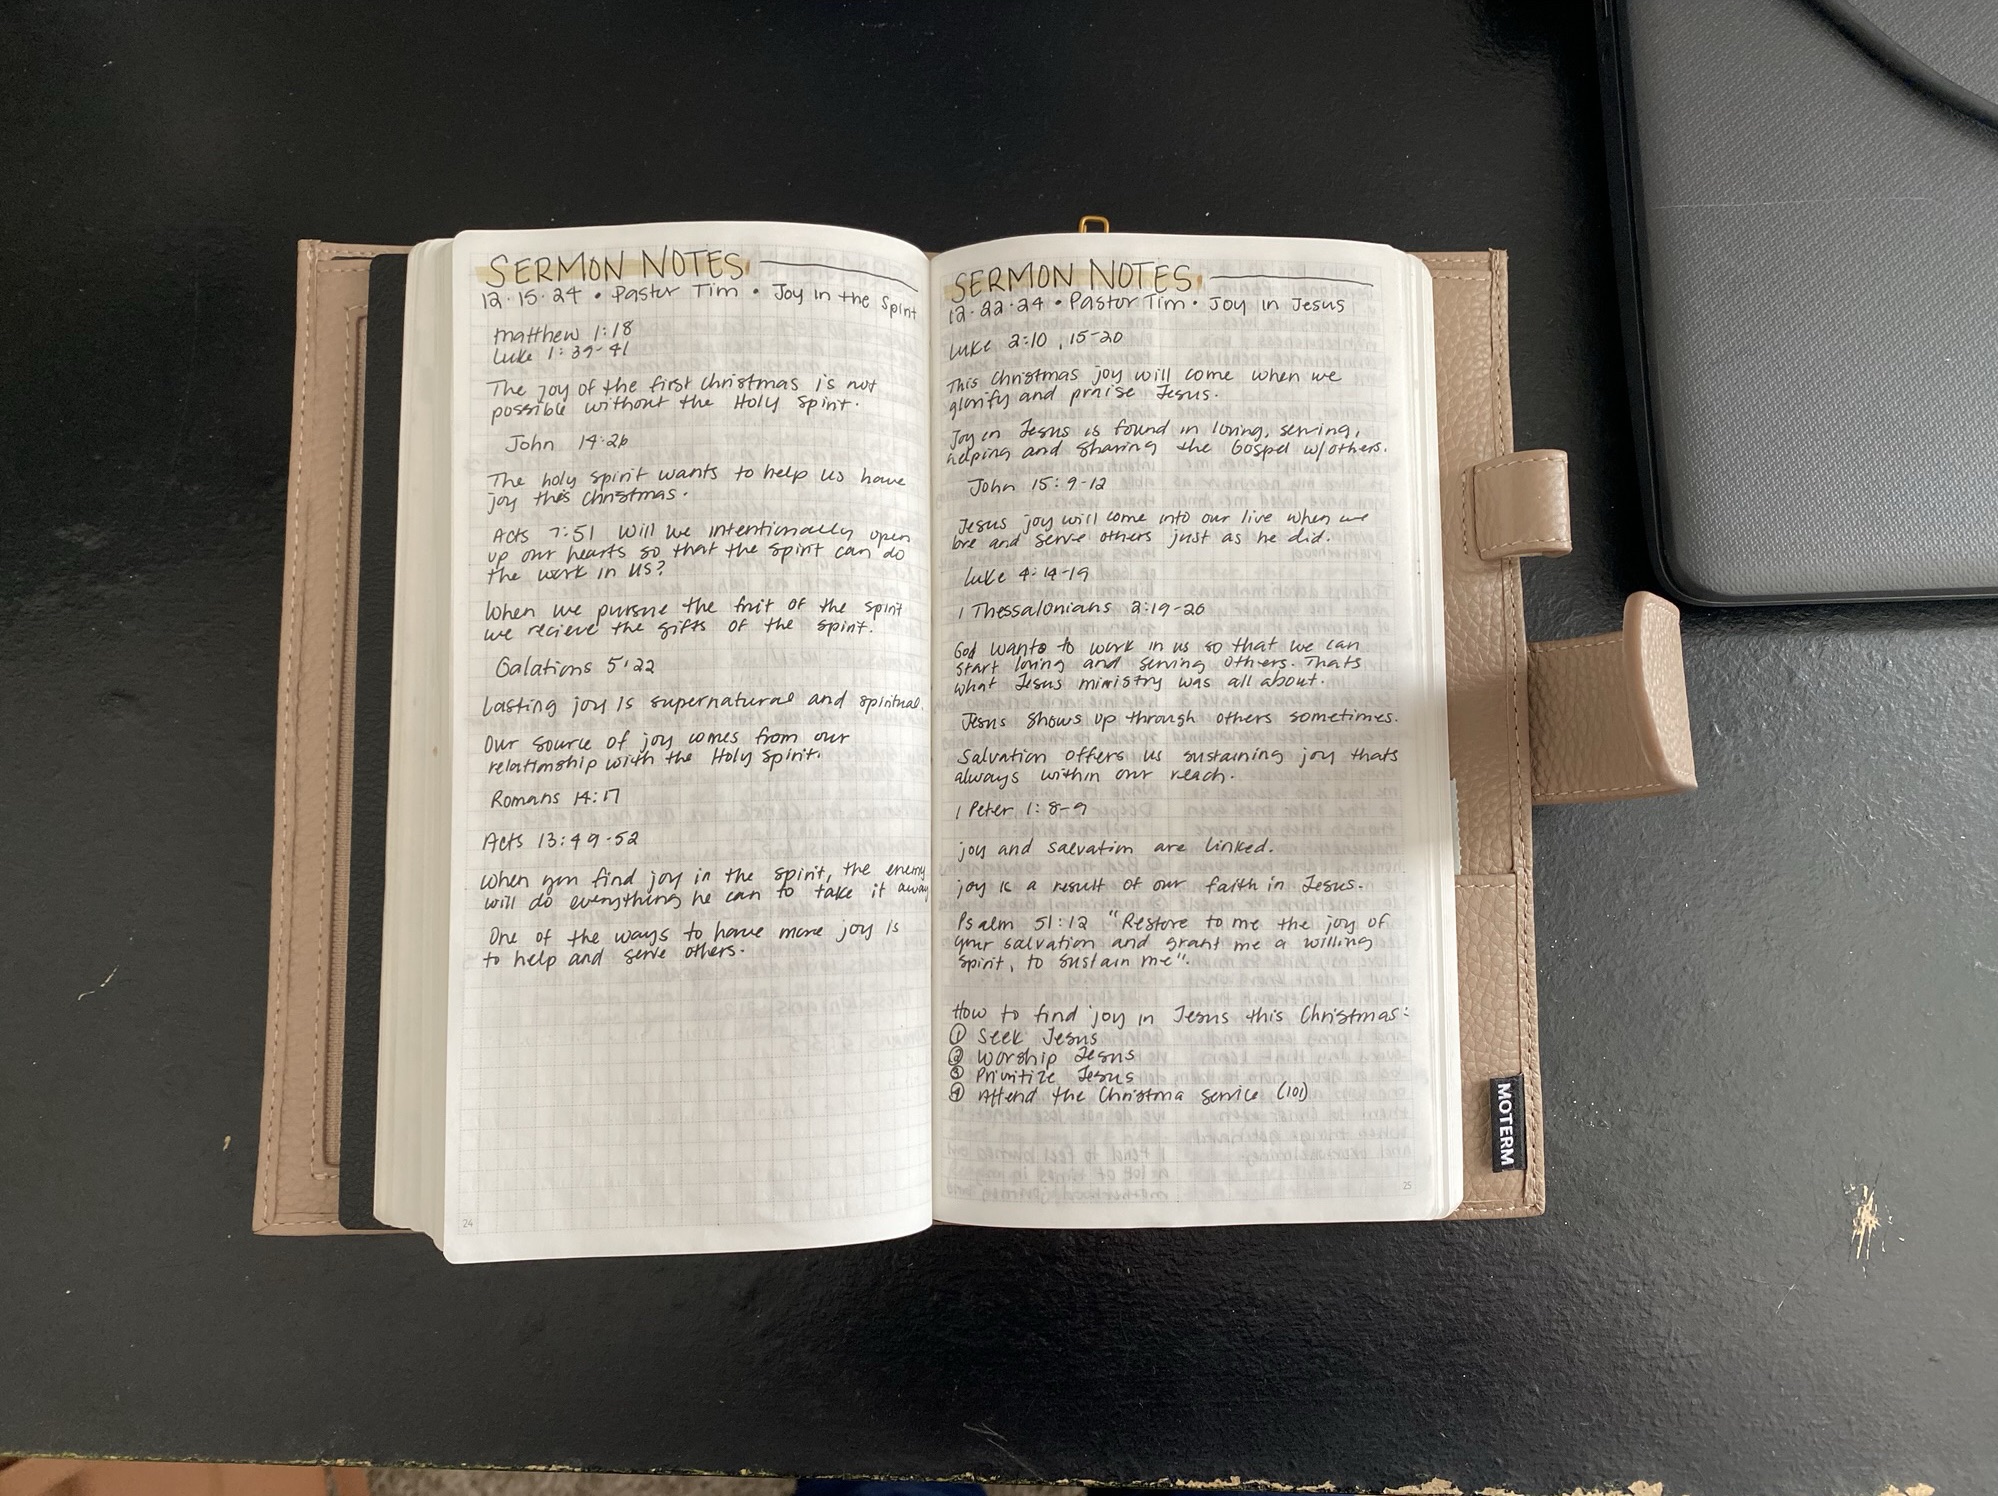 SERMON NOTES
12.15.24 • Pastor Tim • Joy in the Spirit
Matthew 1:18
Luke 1:39-41
The joy of the first Christmas is not
possible without the Holy Spirit.
John 14:26
The holy spirit wants to help us have
joy this Christmas.
Acts 7:51 Will we intentionally open
up our hearts so that the spirit can do
the work in us?
When we pursue the fruit of the spirit
we recieve the gifts of the spirit.
Galations 5:22
Lasting joy is supernatural and spiritual.
Our source of joy comes from our
relationship with the Holy Spirit.
Romans 14:17
Acts 13:49-52
When you find joy in the spirit, the enemy
will do everything he can to take it away
One of the ways to have more joy is
to help and serve others.
24
SERMON NOTES
12.22.24 • Pastor Tim • Joy in Jesus
Luke 2:10, 15-20
This Christmas joy will come when we
glorify and praise Jesus.
Joy in Jesus is found in loving, serving,
helping and sharing the Gospel w/others.
John 15:9-12
Jesus joy will come into our live when we
love and serve others just as he did.
Luke 4:14-19
1 Thessalonians 2:19-20
God wants to work in us so that we can
start loving and serving others. Thats
what Jesus ministry was all about.
Jesus shows up through others sometimes.
Salvation offers us sustaining joy thats
always within our reach.
1 Peter 1:8-9
joy and salvation are linked.
joy is a result of our faith in Jesus.
Psalm 51:12 "Restore to me the joy of
your salvation and grant me a willing
spirit, to sustain me".
How to find joy in Jesus this Christmas:
① Seek Jesus
② Worship Jesus
③ Prioritize Jesus
④ Attend the Christma service (101)
25
MOTERM